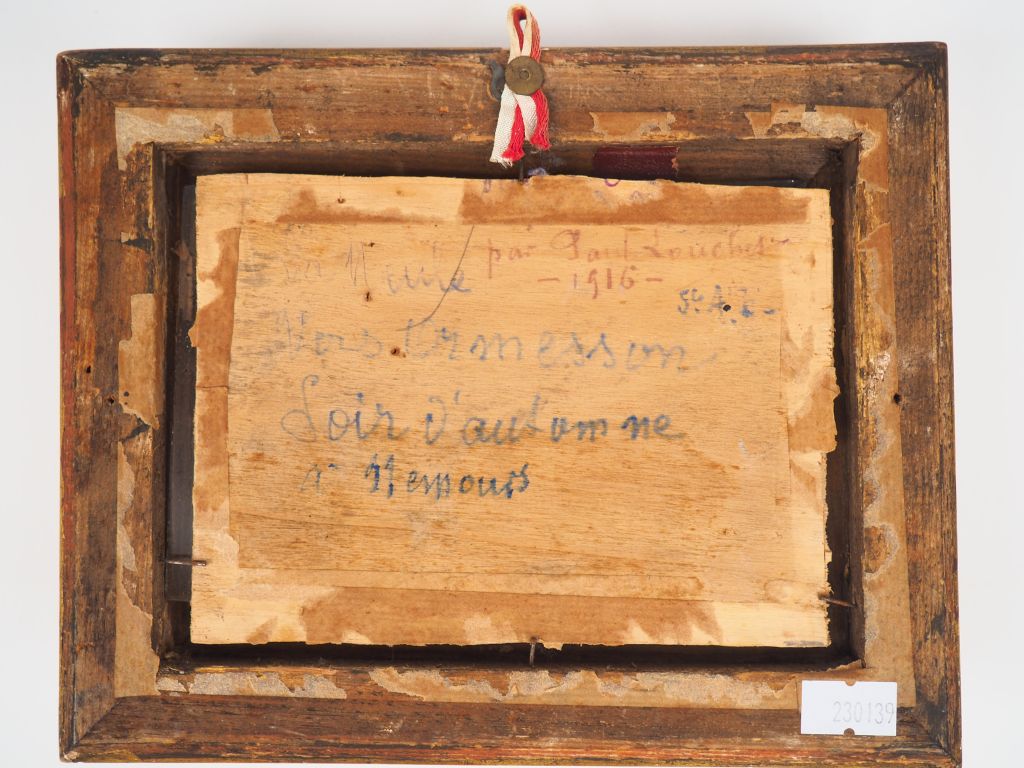 par Paul Louchet
- 1916 -
Vers Ormesson
Soir d'automne
à Nemours
230139